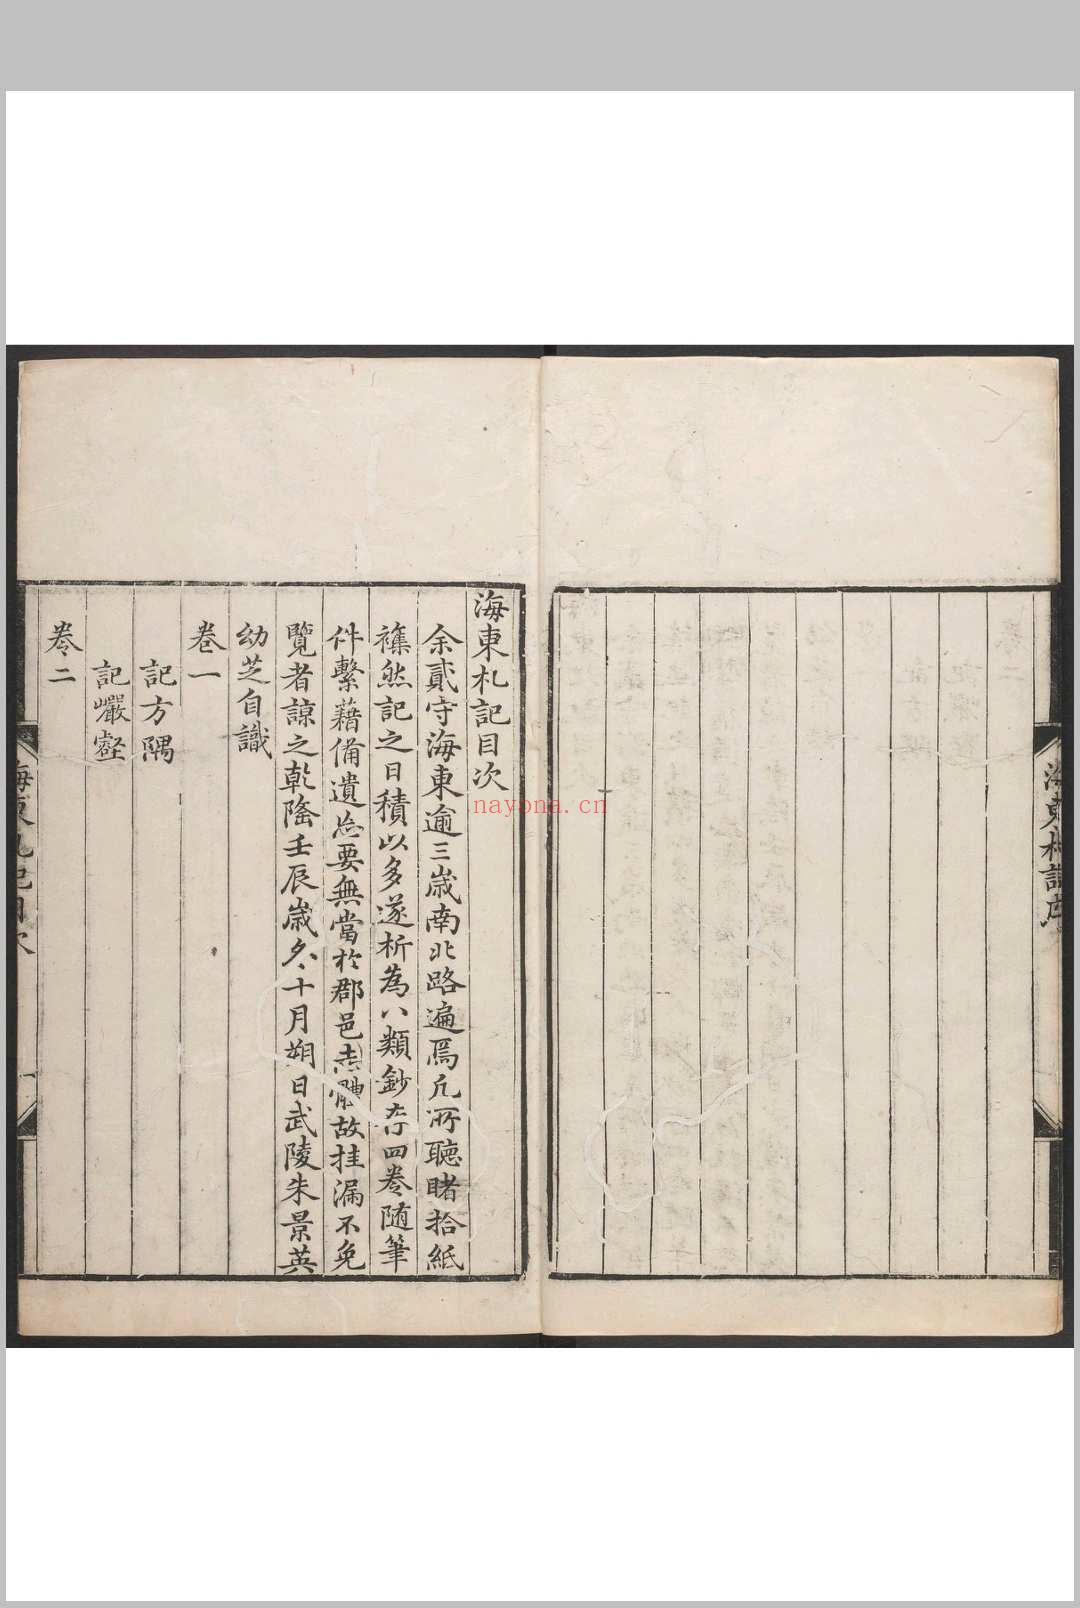 海東札記序
海東札記目次
余貳守海東逾三歲南北路遍焉凡所聽睹拾紙
襍然記之日積以多遂析為八類鈔存四卷隨筆
件繫藉備遺忘要無當於郡邑志體故挂漏不免
覽者諒之乾隆壬辰歲冬十月朔日武陵朱景英
幼芝自識
卷一
記方隅
記巖壑
卷二
海東札記目次
一
nayona.cn